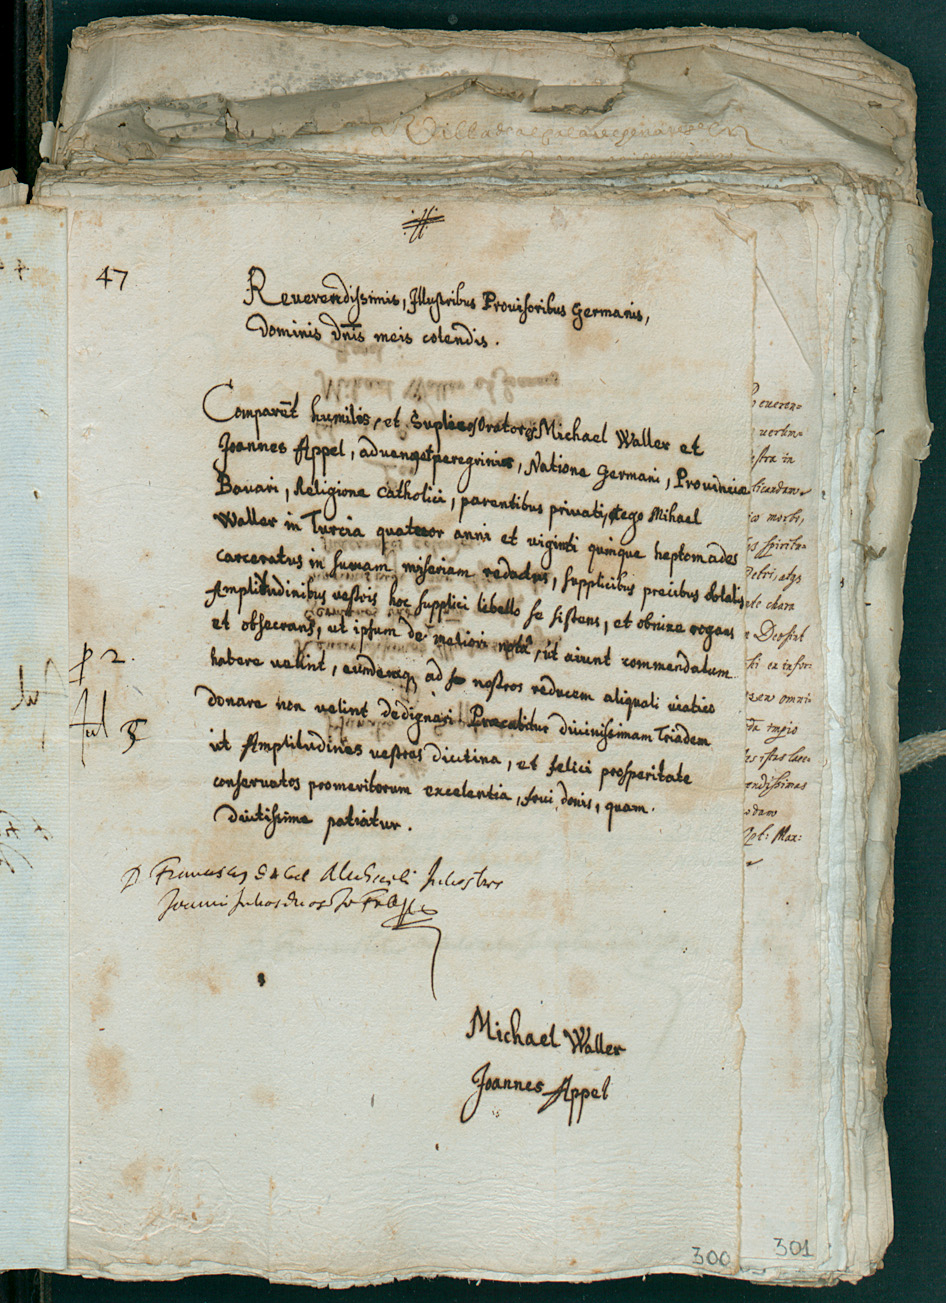 47
Reuerendissimis, Illustribus Prouisoribus Germanis,
Dominis dn̄is meis colendis.
Comparēt humiles, et Suplices Oratores Michael Waller et
Joannes Appel, aduenae et peregrini, Natione Germani, Prouinciae
Bauari, Religione Catholici, parentibus privati, et ego Mihael
Waller in Turcia quatuor anni et viginti quinque heptomades
carceratus in sumam miseriam redactus, supplicibus precibus oblatis
Amplitudinibus vestris hoc supplici libello se sistens, et obnixe rogans
et obsecrans, ut ipsum de meliori nota, ut aiunt commendatum
habere velint, eundemq; ad nostros reducem aliquali viatico
donare non velint dedignari. Precabitur divinissimam Triadem
ut Amplitudines vestras diutina, et felici prosperitate
conseruatos promeritorum excelentia, frui donis, quam.
Diutissime patiatur.
p 2.
Jul 3
Franciscus
Michael Waller
Joannes Appel
300
301
eueren=
estra in
licandam
morbi,
Petri, atq3
clara
Deo sit
ex infor=
omni=
endissimas
Max: